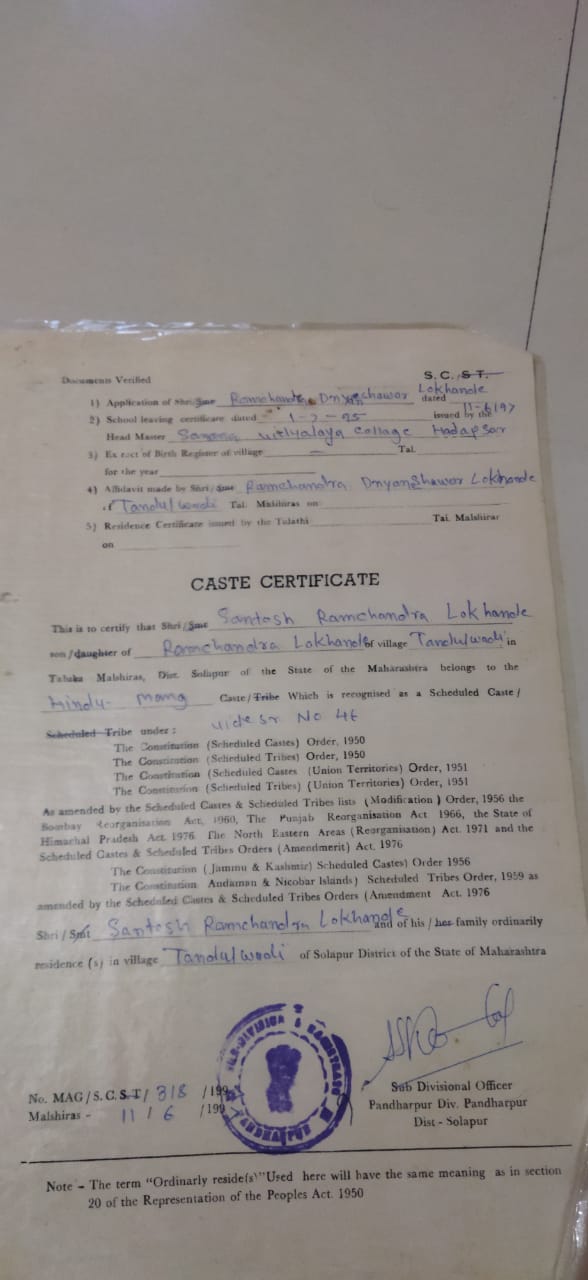 Documents Verified
S. C. S. T.
1) Application of Shri/Sme Ramchandra Dnyaneshawar Lokhande dated 11-6/97
2) School leaving certificate dated 1-7-95 issued by the
Head Master Vidyalaya Collage Hadapsar
3) Ex ract of Birth Register of village — Tal.
for the year
4) Affidavit made by Shri/Sme Ramchandra Dnyanshawar Lokhande
of Tandulwadi Tal. Malshiras on
5) Residence Certificate issued by the Talathi Tal. Malshiras
on
CASTE CERTIFICATE
This is to certify that Shri/Sme Santosh Ramchandra Lokhande
son/daughter of Ramchandra Lokhande of village Tandulwadi in
Taluka Malshiras, Dist. Solapur of the State of the Maharashtra belongs to the
Hindu- mang Caste/Tribe Which is recognised as a Scheduled Caste/
Scheduled Tribe under : vide sr No 46
The Constitution (Scheduled Castes) Order, 1950
The Constitution (Scheduled Tribes) Order, 1950
The Constitution (Scheduled Castes (Union Territories) Order, 1951
The Constitution (Scheduled Tribes) (Union Territories) Order, 1951
As amended by the Scheduled Castes & Scheduled Tribes lists (Modification) Order, 1956 the
Bombay Reorganisation Act, 1960, The Punjab Reorganisation Act. 1966, the State of
Himachal Pradesh Act. 1976 The North Eastern Areas (Reorganisation) Act. 1971 and the
Scheduled Castes & Scheduled Tribes Orders (Amendment) Act. 1976
The Constitution (Jammu & Kashmir) Scheduled Castes) Order 1956
The Constitution Andaman & Nicobar Islands) Scheduled Tribes Order, 1959 as
amended by the Scheduled Castes & Scheduled Tribes Orders (Amendment Act. 1976
Shri/Smt Santosh Ramchandra Lokhande and of his/her family ordinarily
residence (s) in village Tandulwadi of Solapur District of the State of Maharashtra
No. MAG/S. C. S. T/ 318 /199
Malshiras - 11 / 6 /199
Sub Divisional Officer
Pandharpur Div. Pandharpur
Dist - Solapur
SUB-DIVISION
PANDHARPUR
Note - The term "Ordinarly reside(s)" Used here will have the same meaning as in section
20 of the Representation of the Peoples Act. 1950